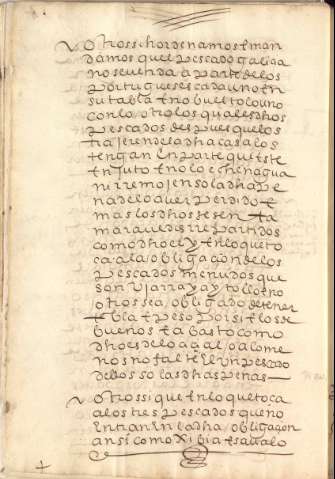 Otrossi hordenamos e man
damos quel pescado galiga
no se venda a parte de los
portugueses cada uno en
su tabla e no buelto lo uno
con lo otro los quales dhos
pescados despues que los
trajeren de la dha casa los
tengan en parte que este
enjuto e no lo echen agua
ni rremojen so la dha pe
na de lo aver perdido e
mas los dhos sesenta
maravedis rrepartidos
como dho es y en lo que to
ca a la obligaçion de los
pescados menudos que
son y a rraya y tollo e no
otro sea obligado de tener
tabla e peso por si e los de
buenos e a basto como
dho es de lo qual o a lo me
nos no falte el un pescado
de los so las dhas penas
Otrossi que en lo que toca
a los tres pescados que no
entran en la dha obligaçion
ansi como xibia e savalo